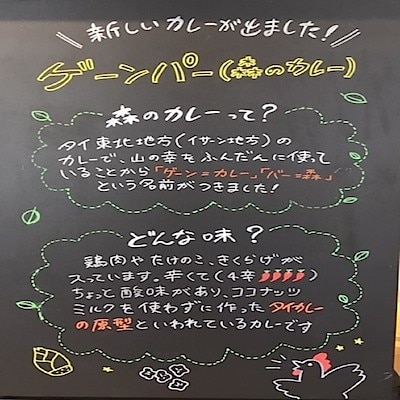 新しいカレーが出ました!
ゲーンパー(森のカレー)
森のカレーって?
タイ東北地方(イサーン地方)の
カレーで、山の幸をふんだんに使って
いることから「ゲーン=カレー」「パー=森」
という名前がつきました!
どんな味?
鶏肉やたけのこ、きくらげが
入っています。辛くて(4辛)
ちょっと酸味があり、ココナッツ
ミルクを使わずに作ったタイカレー
の原型といわれているカレーです